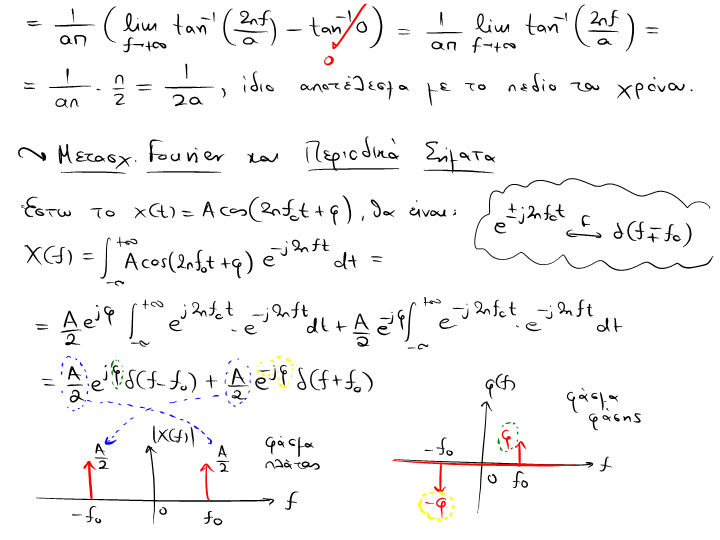 = 1/(aπ) ( lim_{f→+∞} tan⁻¹(2πf/a) − tan⁻¹0 ) = 1/(aπ) lim_{f→+∞} tan⁻¹(2πf/a) =
0
= 1/(aπ) · π/2 = 1/(2a), ίδιο αποτέλεσμα με το πεδίο του χρόνου.
~ Μετασχ. Fourier και Περιοδικά Σήματα
Έστω το x(t) = A cos(2πf₀t + φ), θα είναι:
e^{±j2πf₀t} ↔^{F} δ(f∓f₀)
X(f) = ∫_{-∞}^{+∞} A cos(2πf₀t + φ) e^{-j2πft} dt =
= A/2 e^{jφ} ∫_{-∞}^{+∞} e^{j2πf₀t} · e^{-j2πft} dt + A/2 e^{-jφ} ∫_{-∞}^{+∞} e^{-j2πf₀t} · e^{-j2πft} dt
= A/2 e^{jφ} δ(f−f₀) + A/2 e^{-jφ} δ(f+f₀)
A/2 |X(f)| A/2 φάσμα πλάτους
−f₀ 0 f₀ f
φ(f) φάσμα φάσης
−f₀ φ f
0 f₀
−φ